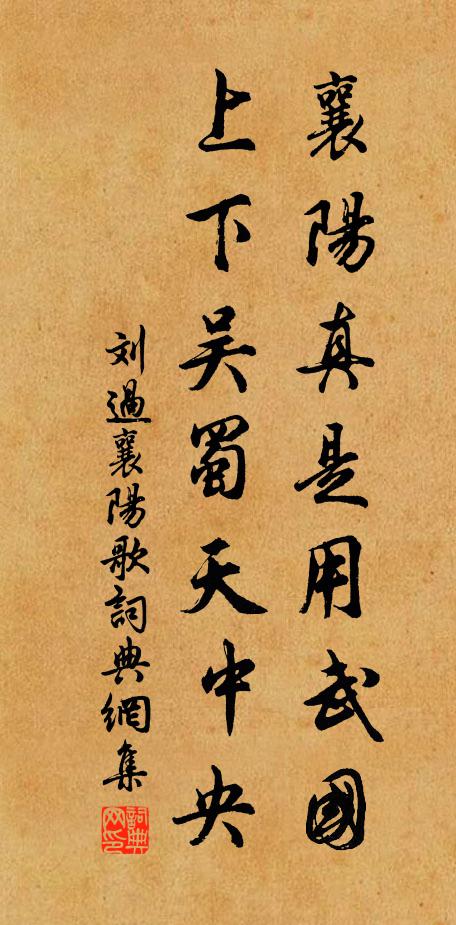 襄陽真是用武國
上下吴蜀天中央
刘過襄陽歌詞典網集
詞典网印